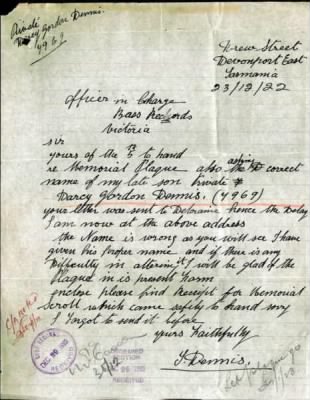 Private
Darcy Gordon Dennis.
4969
Drew Street
Devonport East
Tasmania
23/12/22
Officer in Charge
Base Records
Victoria
Sir
yours of the 5th to hand
re Memorial Plaque also asking the correct
name of my late son Private
Darcy Gordon Dennis. (4969)
your letter was sent to Deloraine hence the Delay
I am now at the above address
the Name is wrong as you will see I have
given his proper name and if there any
Difficulty in altering it I will be glad of the
Plaque in is present form
inclose please find Receipt for Memorial
Scroll which came safely to hand sorry
I forgot to send it before
yours Faithfully
J. Dennis.
RECEIVED